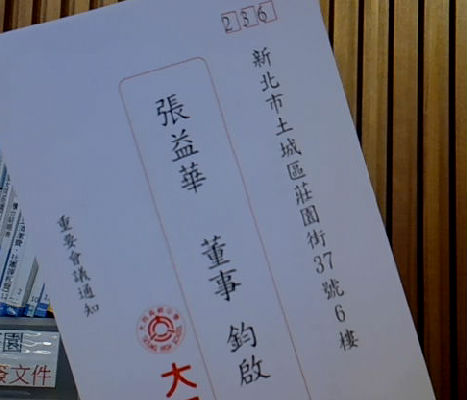 236
新北市土城區莊園街37號6樓
張益華 董事 鈞啟
重要會議通知
大
園
簽文件